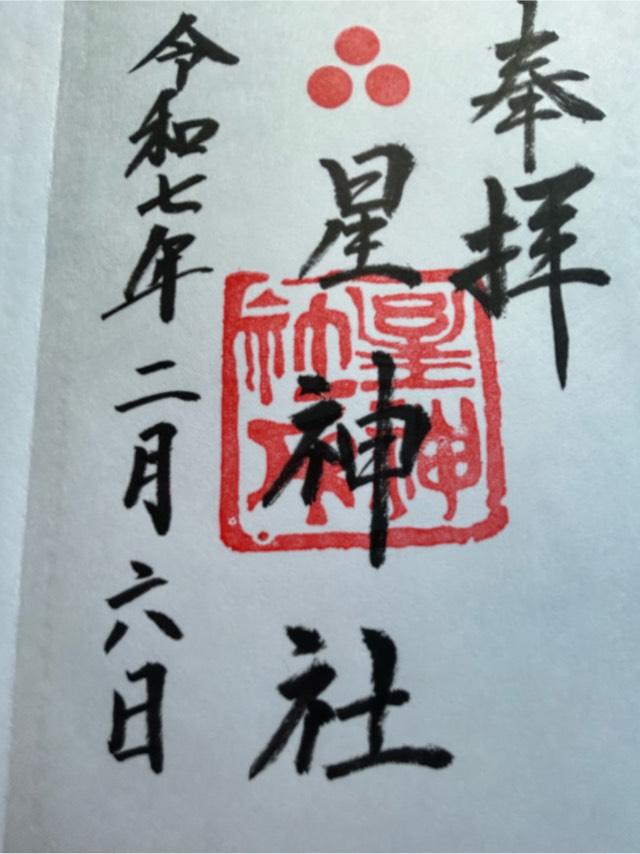 奉拝
星神社
令和七年二月六日